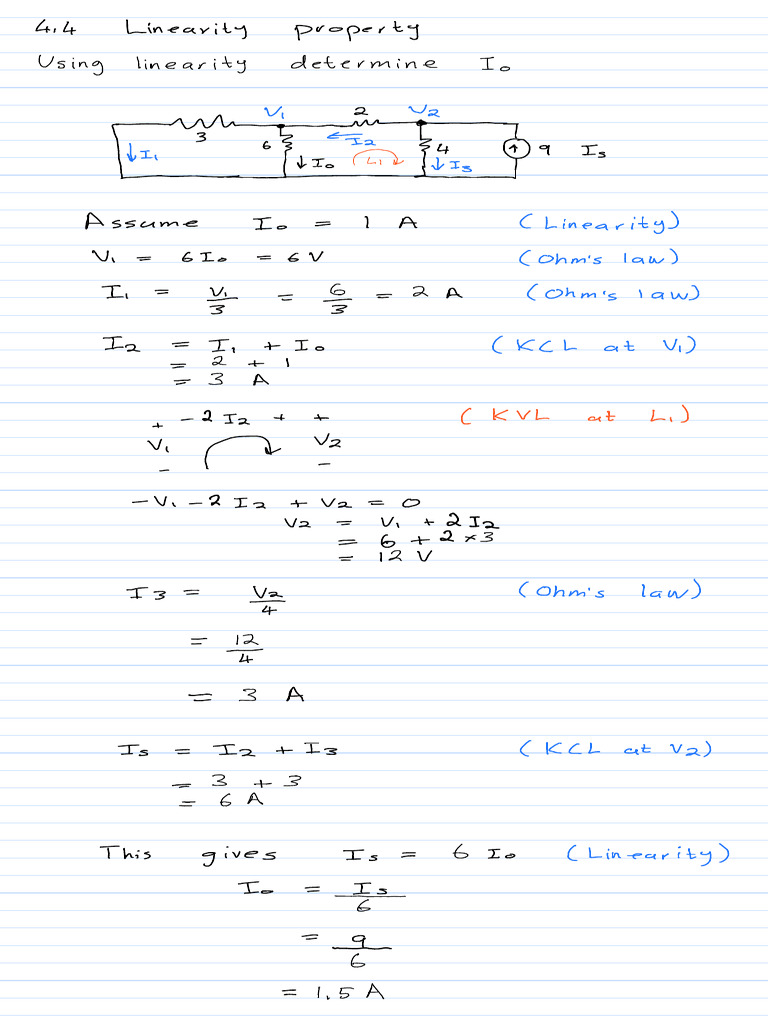 4.4 Linearity property
Using linearity determine Io
V1 2 V2
3 6 I2 4 9 Is
↓ I1 ↓ Io L1 ↓ I3
Assume Io = 1 A (Linearity)
V1 = 6 Io = 6 V (Ohm's law)
I1 = V1/3 = 6/3 = 2 A (Ohm's law)
I2 = I1 + Io (KCL at V1)
= 2 + 1
= 3 A
+ - 2 I2 + + (KVL at L1)
V1 V2
- -
-V1 - 2 I2 + V2 = 0
V2 = V1 + 2 I2
= 6 + 2 × 3
= 12 V
I3 = V2/4 (Ohm's law)
= 12/4
= 3 A
Is = I2 + I3 (KCL at V2)
= 3 + 3
= 6 A
This gives Is = 6 Io (Linearity)
Io = Is/6
= 9/6
= 1.5 A